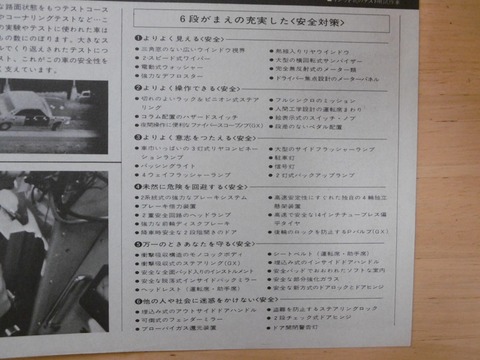 な路面状態をもつテストコース
やコーナリングテストなど―こ
の実験やテストに使った車は
もの数にのぼります。大きなス
ルでくり返えされたテストにつ
スト。これがこの車の安全性を
く支えています。
6段がまえの充実した〈安全対策〉
❶よりよく見える〈安全〉
●三角窓のない広いウインドウ視界
●2-スピード式ワイパー
●電動式ウォッシャー
●強力なデフロスター
●熱線入りリヤウインドウ
●大型の横回転式サンバイザー
●完全無反射式のメーター類
●ドライバー焦点設計のメーターパネル
❷よりよく操作できる〈安全〉
●切れのよいラック&ピニオン式ステア
リング
●コラム配置のハザードスイッチ
●夜間操作に便利なファイバースコープランプ(GX)
●フルシンクロのミッション
●人間工学設計の運転席まわり
●絵表示式のスイッチ・ノブ
●段差のないペダル配置
❸よりよく意志をつたえる〈安全〉
●車巾いっぱいの3灯式リヤコンビネー
ションランプ
●パッシングライト
●4ウェイフラッシャーランプ
●大型のサイドフラッシャーランプ
●駐車灯
●信号灯
●2灯式バックアップランプ
❹未然に危険を回避する〈安全〉
●2系統式の強力なブレーキシステム
●ブレーキ倍力装置
●2重安全回路のヘッドランプ
●強力な前輪ディスクブレーキ
●降車時安全な2段階開きのドア
●高速安定性にすぐれた独自の4輪独立
懸架装置
●高速で安全な14インチチューブレス偏
平タイヤ
●後輪のロックを防止するPバルブ(GX)
❺万一のときあなたを守る〈安全〉
●衝撃吸収構造のモノコックボディ
●衝撃吸収式のステアリング(GX)
●安全な全面パッド入りのインストルメント
●安全な脱落式インサイドミラー
●ヘッドレスト(運転席・助手席)
●シートベルト(運転席・助手席)
●埋込み式のインサイドドアハンドル
●安全パッドでおおわれたソフトな室内
●安全な部分強化ガラス
●安全な耐力式のドアロックとドアヒンジ
❻他の人や社会に迷惑をかけない〈安全〉
●埋込み式のアウトサイドドアハンドル
●可倒式のフェンダーミラー
●ブローバイガス還元装置
●盗難を防止するステアリングロック
●2段チェック式ドアヒンジ
●ドア開閉警告灯